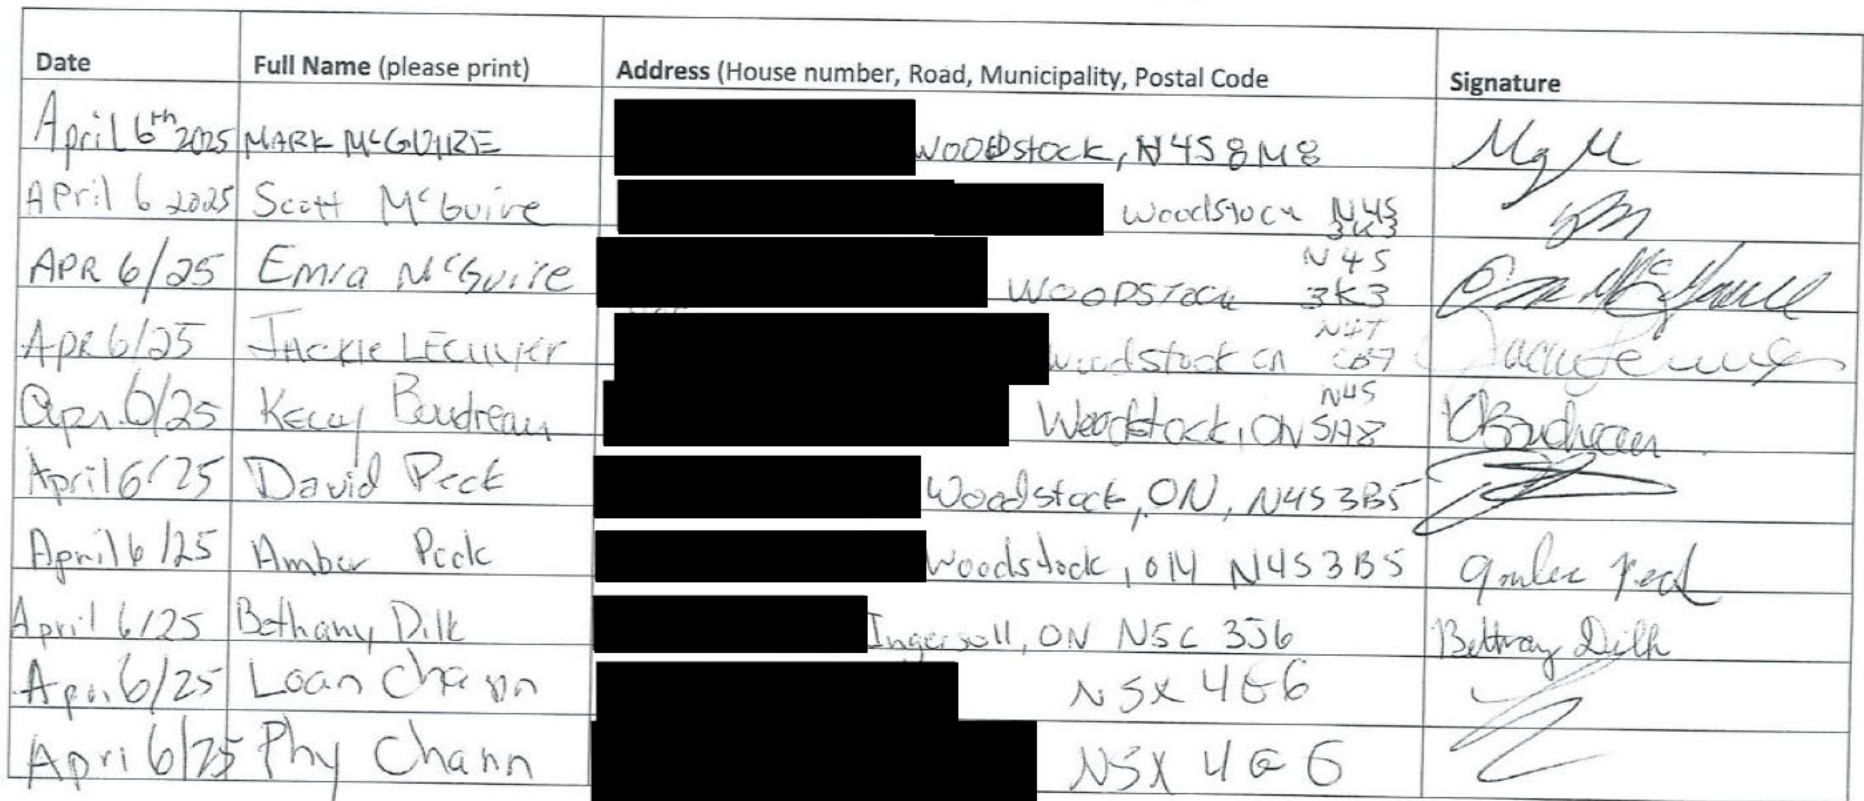 Date Full Name (please print) Address (House number, Road, Municipality, Postal Code Signature
April 6th 2025 MARK McGUIRE WOODstock, N4S 8M8
April 6 2025 Scott McGuire Woodstock N4S 3K3
APR 6/25 Emra McGuire WOODSTOCK N4S 3K3
APR 6/25 JACKIE LECUYER Woodstock N4T
Apr. 6/25 Kelly Boudreau Woodstock, ON N4S 5A8 KBoudreau
April 6/25 David Peck Woodstock, ON, N4S3B5
April 6/25 Amber Peck Woodstock, ON N4S3B5 Amber Peck
April 6/25 Bethany Dilk Ingersoll, ON N5C 3J6 Bethany Dilk
Apri 6/25 Loan Chann N5X 4G6
Apri 6/25 Phy Chann N5X 4G6